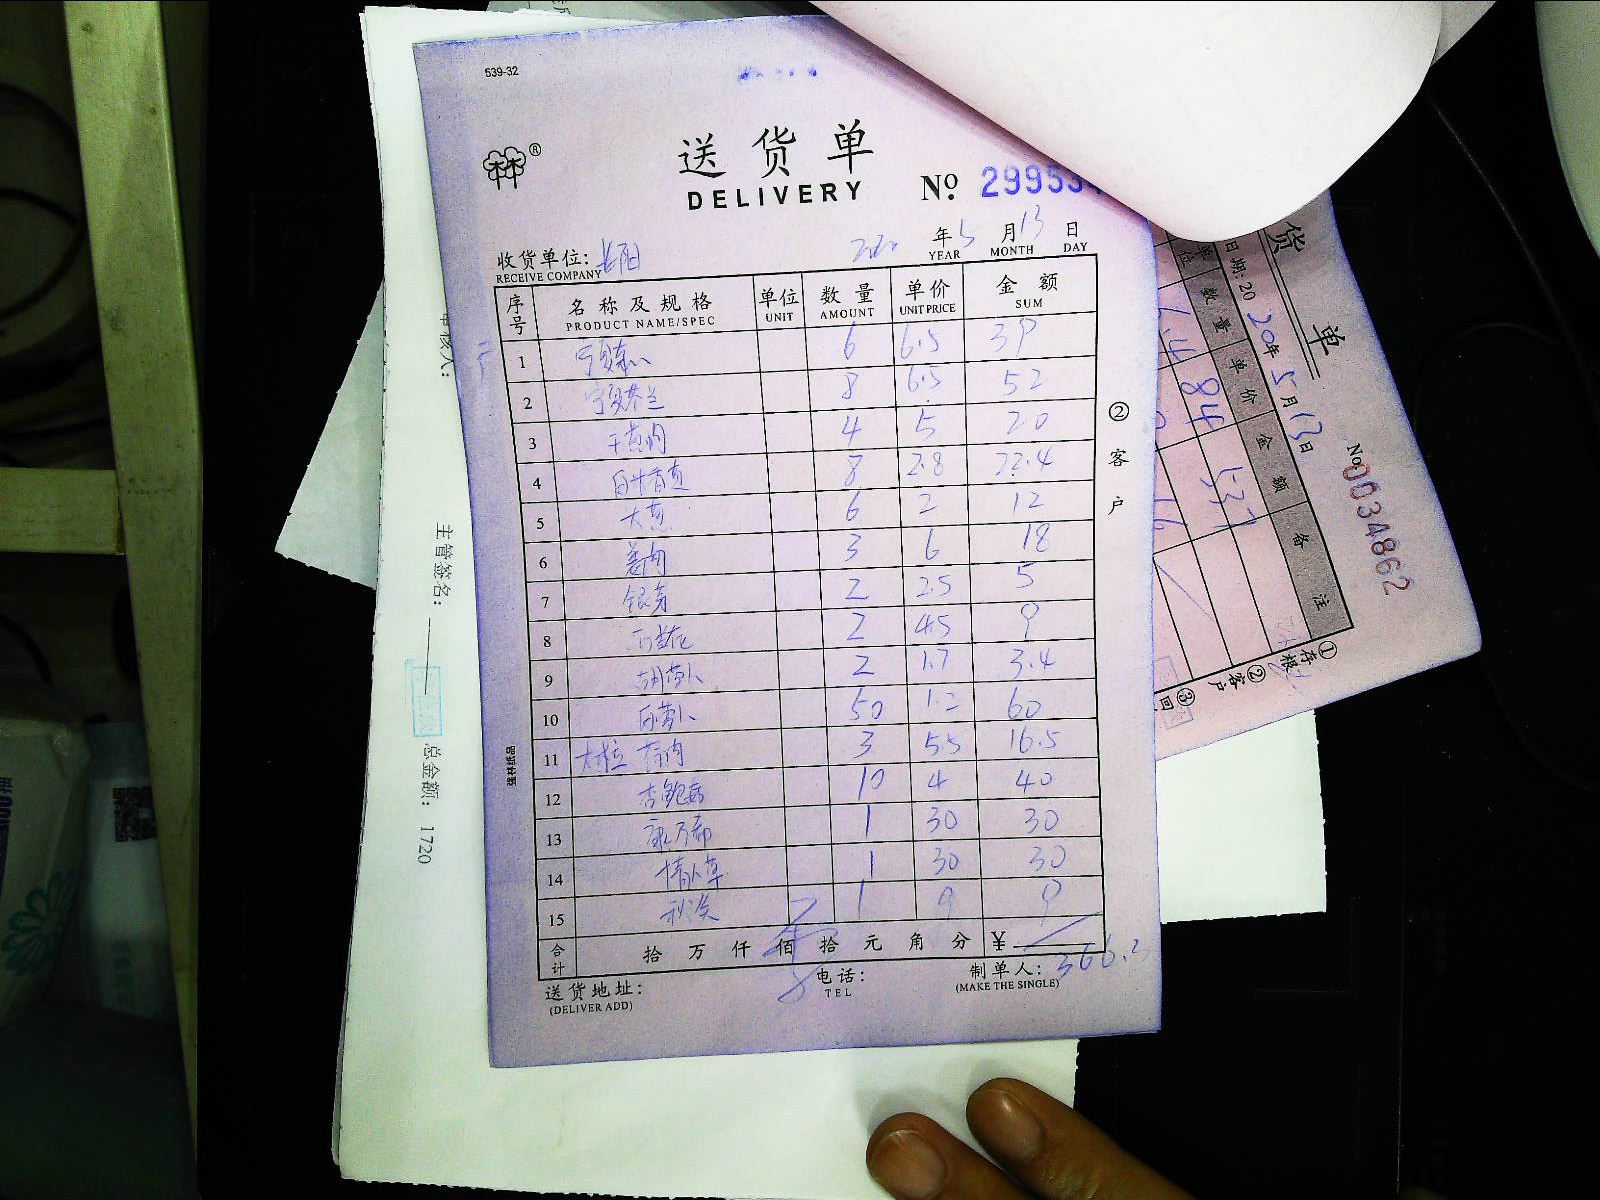 539-32
送货单
DELIVERY
№ 29953
收货单位:
RECEIVE COMPANY
2020 年 5 月 13 日
YEAR MONTH DAY
序号 名称及规格 单位 数量 单价 金额
PRODUCT NAME/SPEC UNIT AMOUNT UNIT PRICE SUM
1 宁夏菜心 6 6.5 39
2 宁夏芥兰 8 6.5 52
3 干葱肉 4 5 20
4 8 2.8 22.4
5 大葱 6 2 12
6 姜肉 3 6 18
7 银芽 2 2.5 5
8 西兰花 2 4.5 9
9 胡萝卜 2 1.7 3.4
10 白萝卜 50 1.2 60
11 大粒蒜肉 3 5.5 16.5
12 杏鲍菇 10 4 40
13 1 30 30
14 情人草 1 30 30
15 秋葵 1 9 9
合计 拾 万 仟 佰 拾 元 角 分 ¥
366.3
送货地址:
(DELIVER ADD)
电话:
TEL
制单人:
(MAKE THE SINGLE)
②客户
强林纸品
主管签名:
总金额: 1720
货单
日期: 2020年5月13日
№ 0034862
单位 数量 单价 金额 备注
84
①存根
②客户
③回